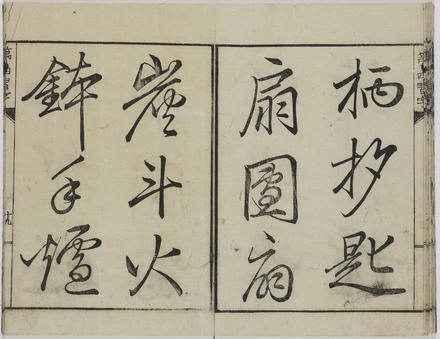 柄杓匙
扇團扇
炭斗火
鉢手爐
十九